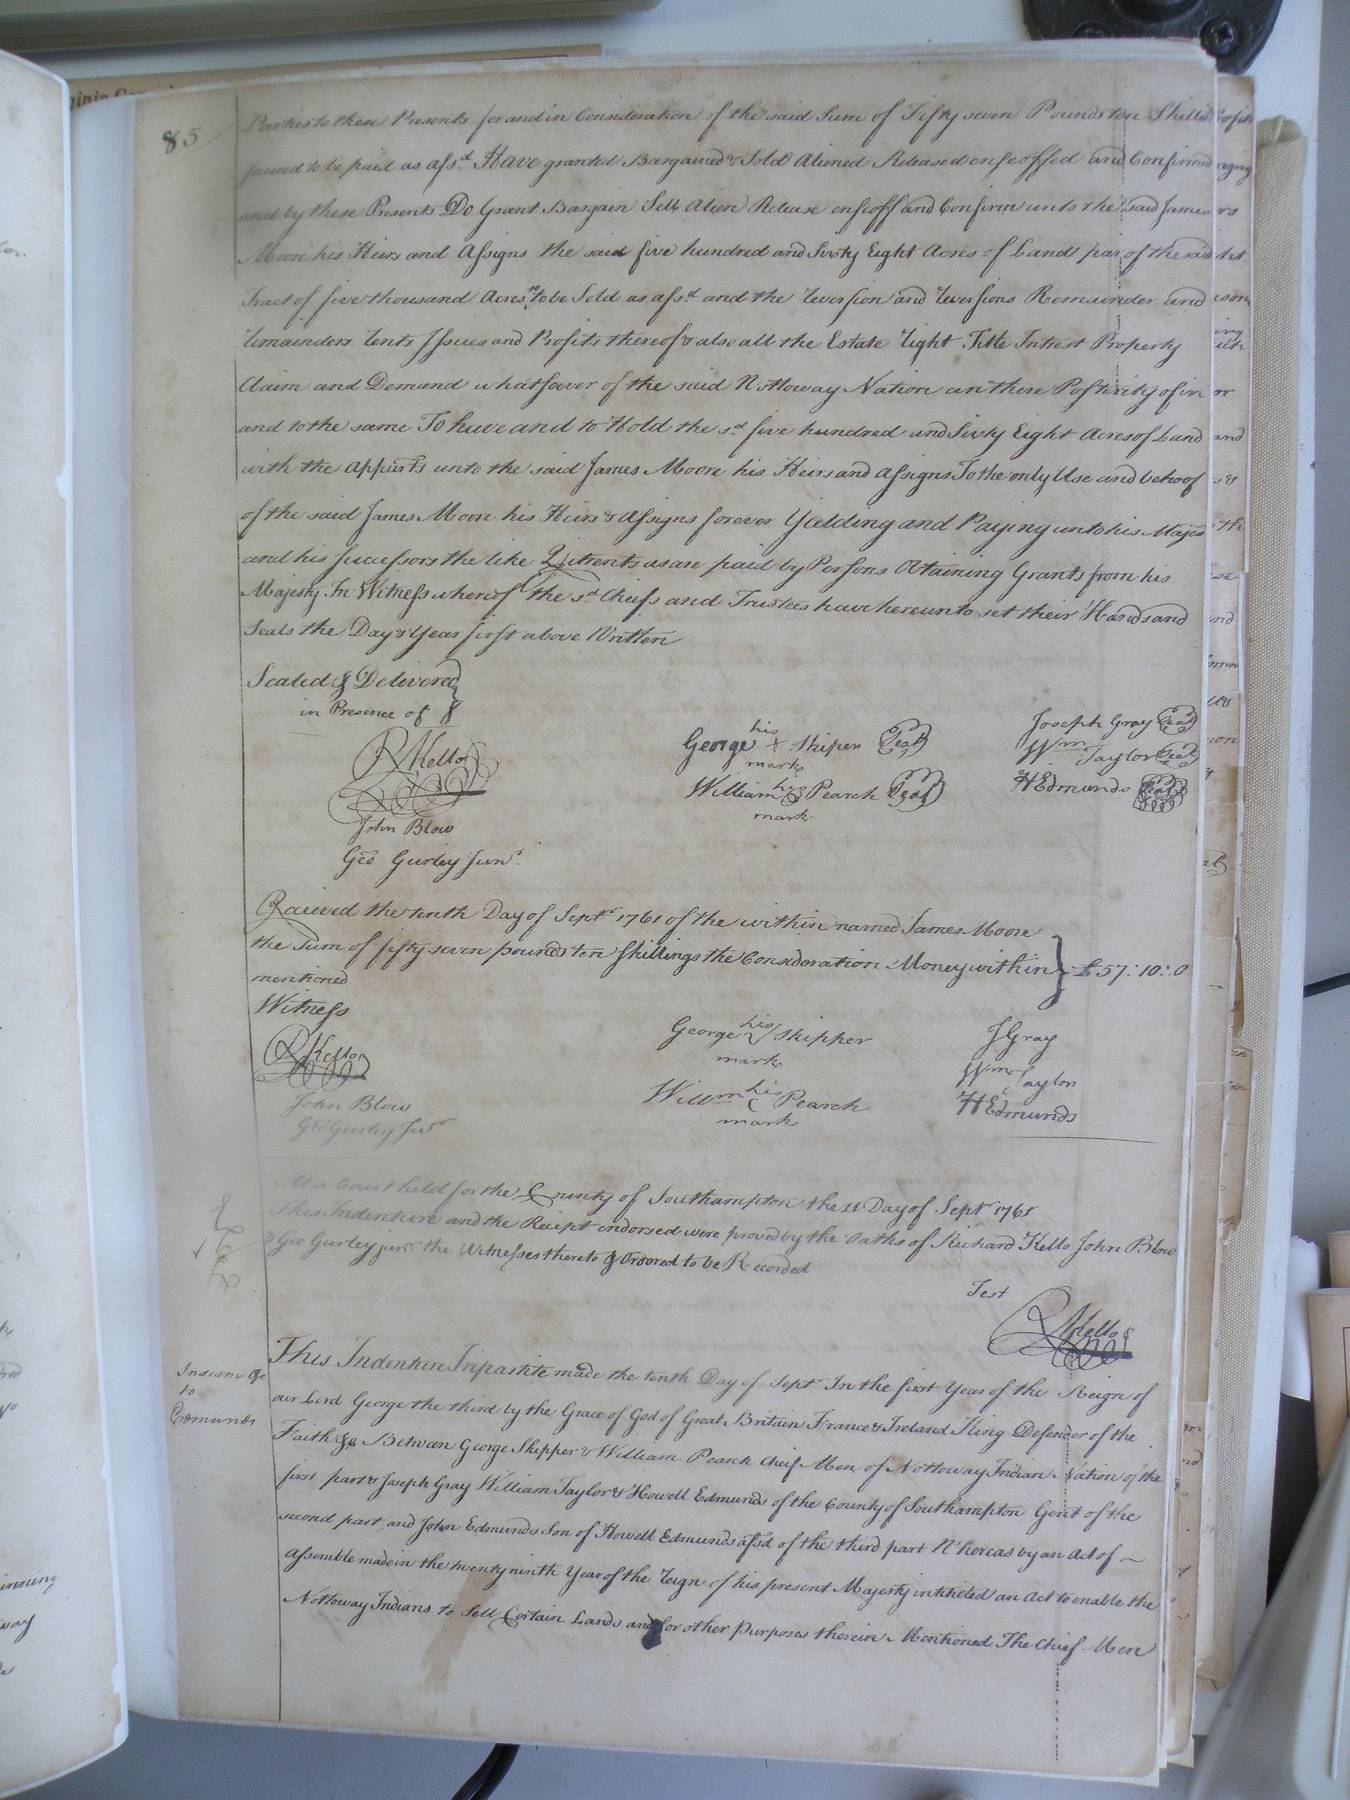 85
Parties to these Presents for and in Consideration of the said Sum of Fifty seven Pounds ten Shills
to be paid as afsd. Have granted Bargained & Sold Aliened Released enfeoffed and Confirmed
and by these Presents Do Grant Bargain Sell Alien Release enfeoff and Confirm unto the said James
Moore his Heirs and Assigns the said five hundred and Sixty Eight Acres of Land par of the said
Tract of five thousand Acres to be Sold as afsd and the reversion and reversions Remainder and
remainders rents Issues and Profits thereof & also all the Estate right Title Intrest Property
Claim and Demand whatsoever of the said Nottoway Nation an there Posterity of in
and to the same To have and to Hold the sd five hundred and Sixty Eight Acres of Land
with the appurts unto the said James Moore his Heirs and Assigns To the only Use and behoof
of the said James Moore his Heirs & Assigns forever Yielding and Paying unto his Majes
and his Successors the like Quitrents as are paid by Persons Obtaining Grants from his
Majesty In Witness whereof the sd Chiefs and Trustees have hereunto set their Hands and
Seals the Day & Year first above Written
Sealed & Delivered
in Presence of
R Kello
John Blow
Geo Gurley Junr.
George his + mark Skiper Seal
William his mark Pearch Seal
Joseph Gray Seal
Wm Taylor Seal
H Edmunds Seal
Received the tenth Day of Septr 1761 of the within named James Moore
the Sum of fifty seven pounds ten Shillings the Consideration Money within £57:10:0
mentioned
Witness
R Kello
John Blow
Geo Gurley Junr
George his mark Skipper
Willm his mark Pearch
J Gray
Wm Taylor
H Edmunds
At a Court held for the County of Southampton the 11 Day of Septr 1761
This Indenture and the Reciept endorsed were proved by the Oaths of Richard Kello John Blow
& Geo Gurley junr. the Witnesses thereto & Ordered to be Recorded
Test
R Kello
Indians &c
to
Edmunds
This Indenture Tripartite made the tenth Day of Sept In the first Year of the Reign of
our Lord George the third by the Grace of God of Great Britain France & Ireland King Defender of the
Faith &c Between George Skipper & William Pearch Cheif Men of Nottoway Indian Nation of the
first part & Joseph Gray William Taylor & Howell Edmunds of the County of Southampton Gent of the
second part and John Edmunds Son of Howell Edmunds afsd of the third part Whereas by an Act of
Assemble made in the twenty ninth Year of the reign of his present Majesty intitled an Act to enable the
Nottoway Indians to Sell Certain Lands and for other Purposes therein Mentioned The Chief Men